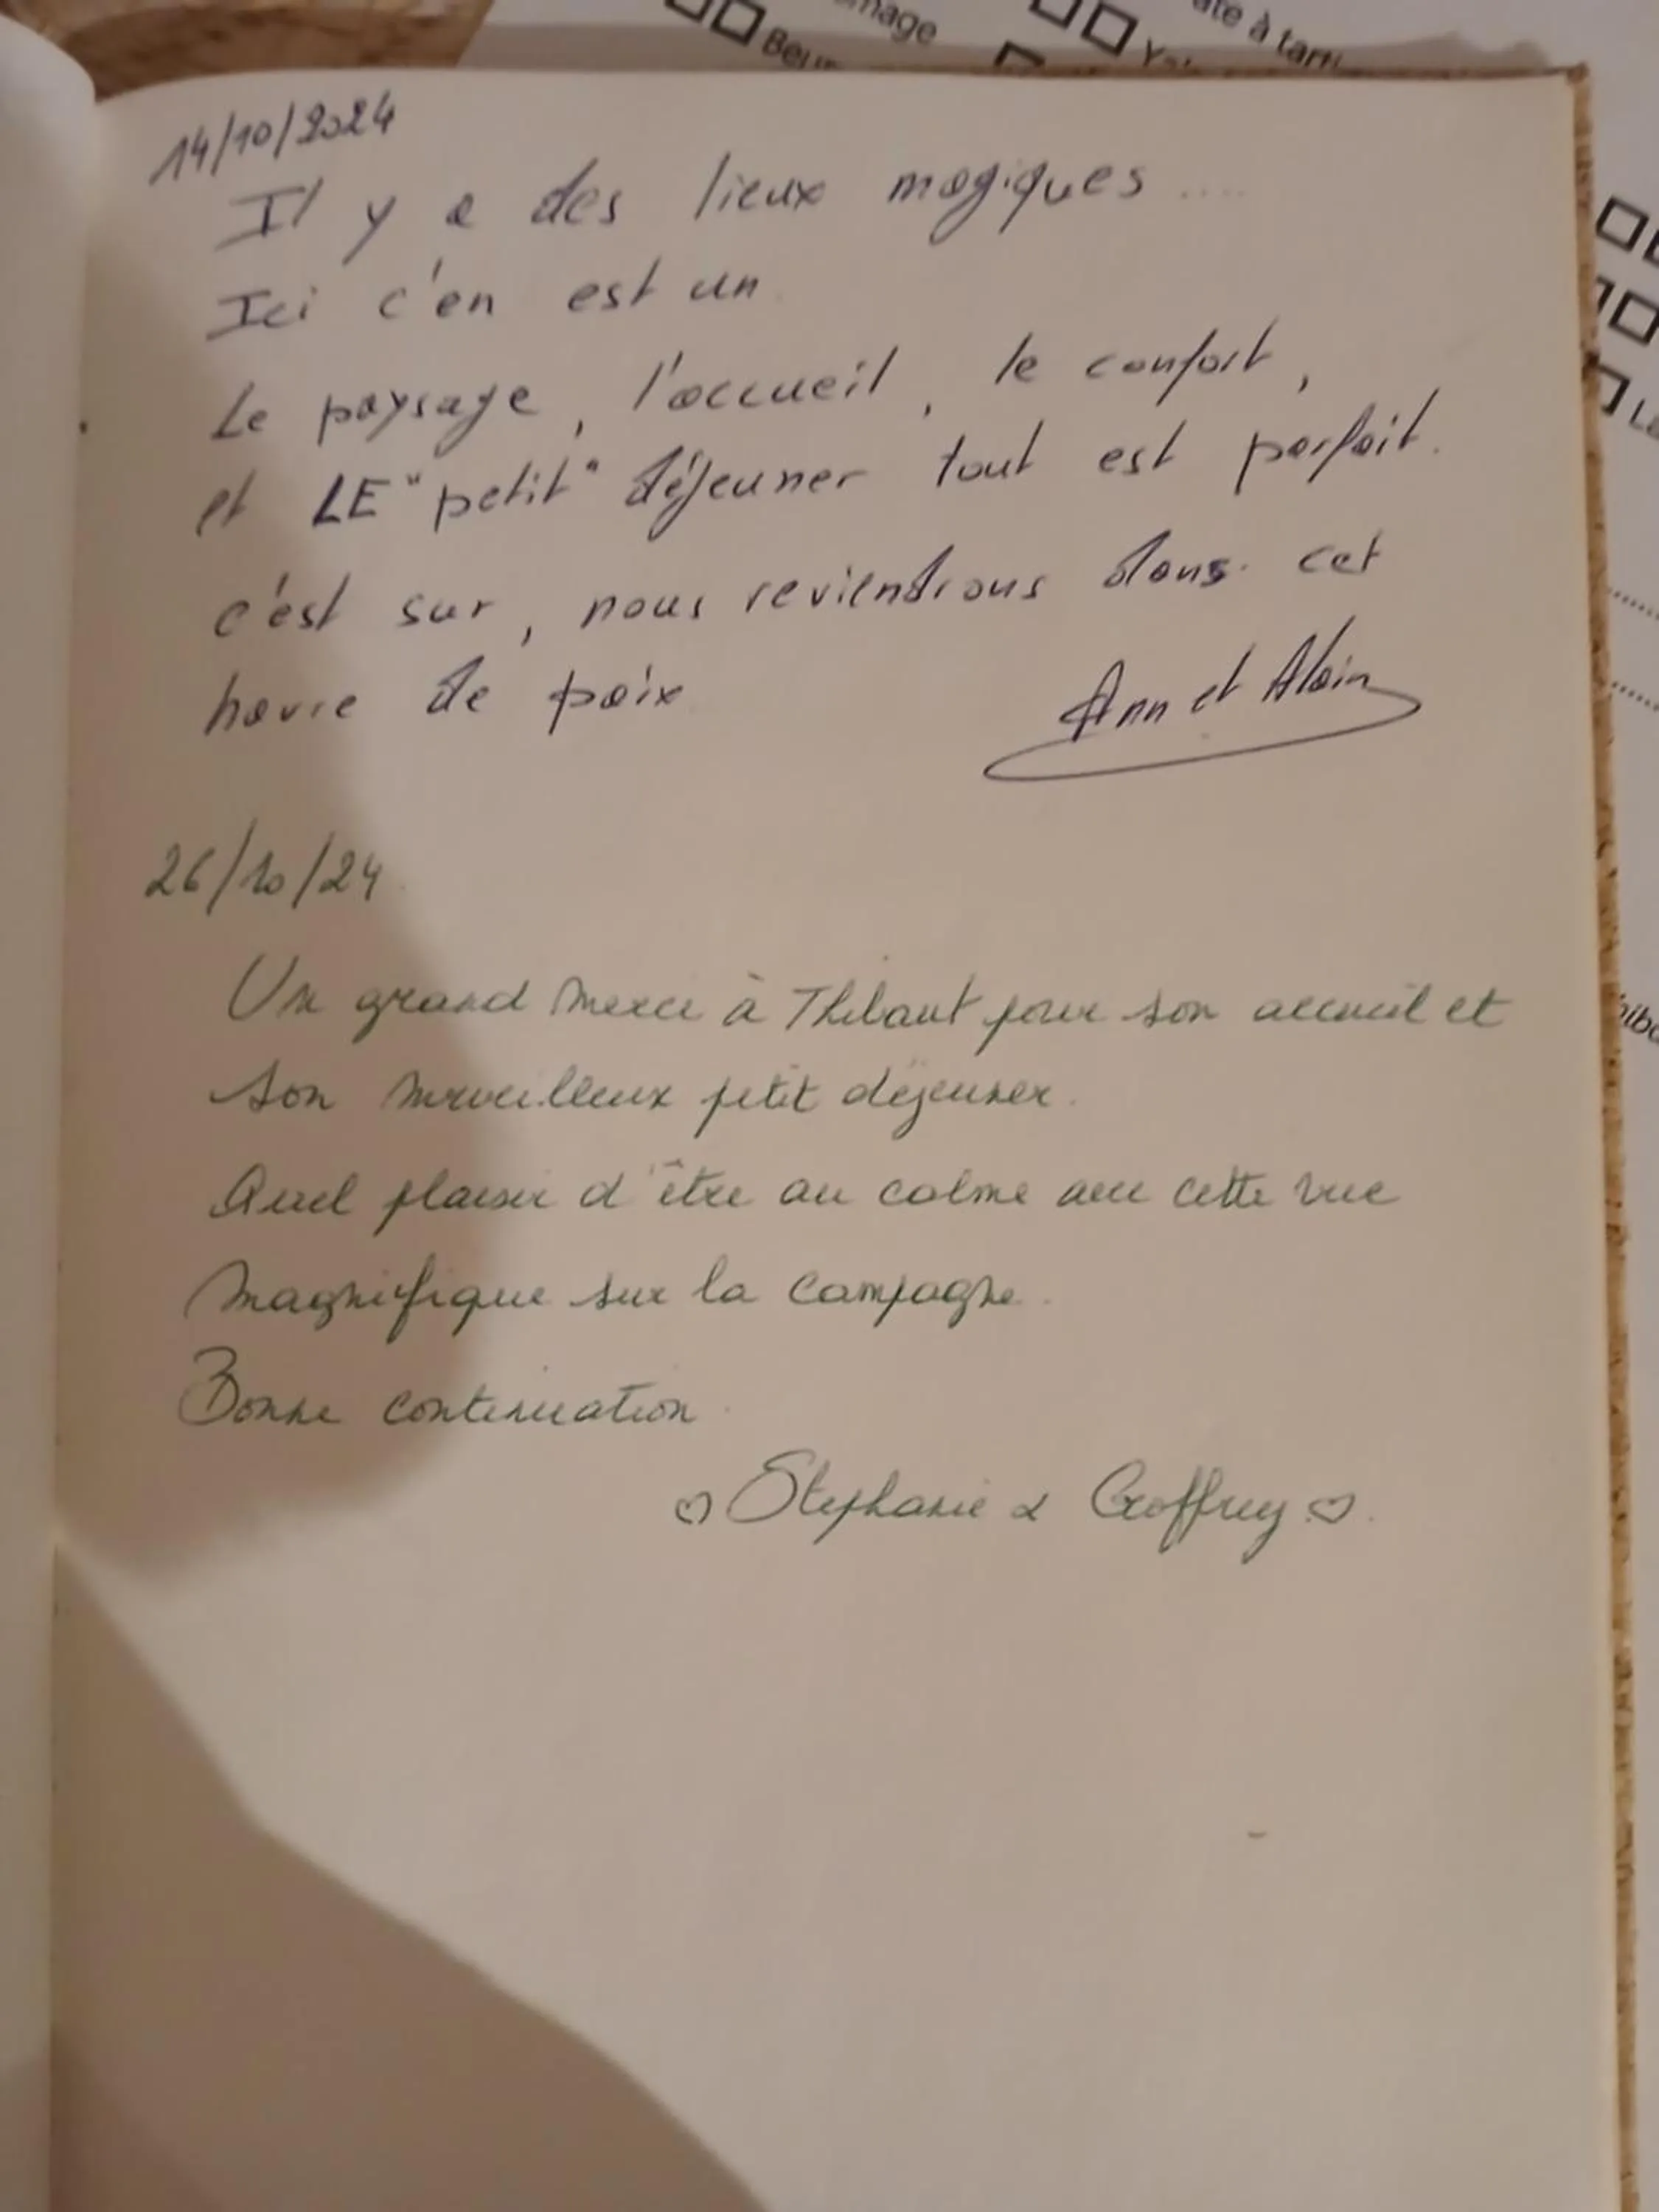 mage
ate à tarti
Beur
14/10/2024
Il y a des lieux magiques ....
Ici c'en est un
Le paysage, l'accueil, le confort,
et LE "petit" déjeuner tout est parfait.
c'est sur, nous reviendrons dans cet
havre de paix
Ann et Alain
26/10/24
Un grand merci à Thibaut pour son accueil et
son merveilleux petit déjeuner.
Quel plaisir d'être au calme avec cette vue
magnifique sur la campagne.
Bonne continuation.
♡ Stephanie & Geoffrey ♡.